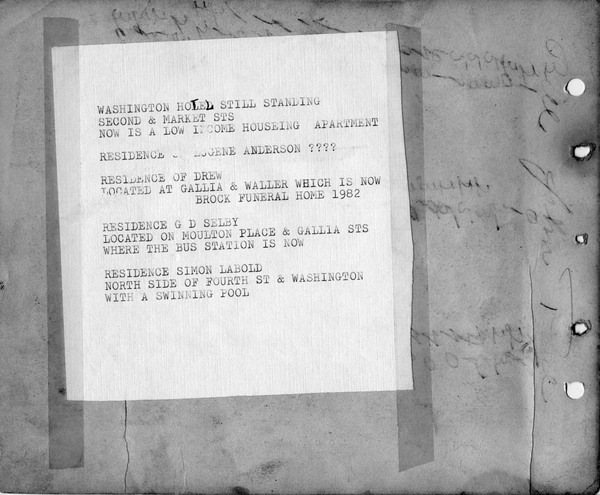 WASHINGTON HOTEL STILL STANDING
SECOND & MARKET STS
NOW IS A LOW INCOME HOUSEING APARTMENT
RESIDENCE EUGENE ANDERSON ????
RESIDENCE OF DREW
LOCATED AT GALLIA & WALLER WHICH IS NOW
BROCK FUNERAL HOME 1982
RESIDENCE G D SELBY
LOCATED ON MOULTON PLACE & GALLIA STS
WHERE THE BUS STATION IS NOW
RESIDENCE SIMON LABOLD
NORTH SIDE OF FOURTH ST & WASHINGTON
WITH A SWINNING POOL